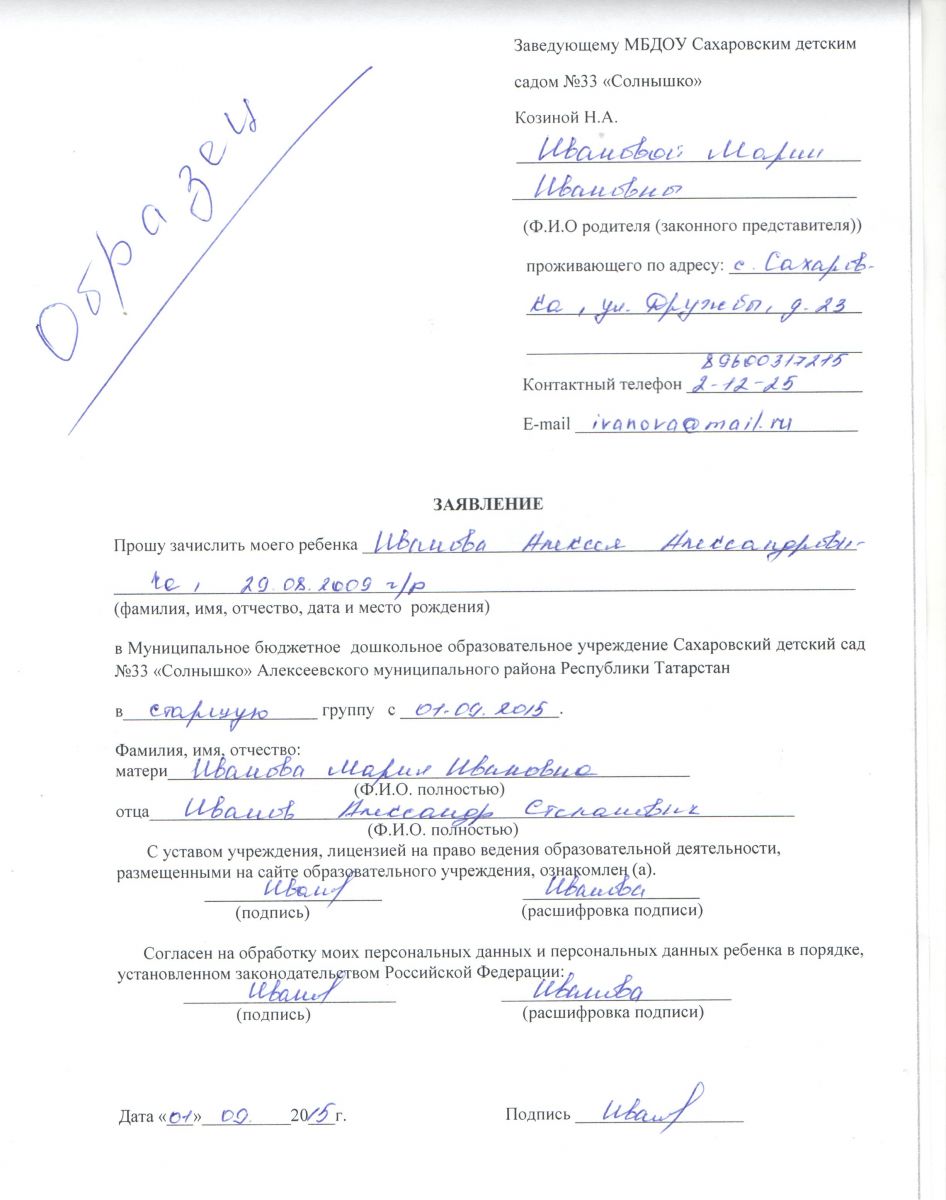 Образец
Заведующему МБДОУ Сахаровским детским
садом №33 «Солнышко»
Козиной Н.А.
Ивановой Марии
Ивановны
(Ф.И.О родителя (законного представителя))
проживающего по адресу: с. Сахаров-
ка, ул. Дружбы, д. 23
89600317215
Контактный телефон 2-12-25
E-mail ivanova@mail.ru
ЗАЯВЛЕНИЕ
Прошу зачислить моего ребенка Иванова Алексея Александрови-
ча, 29.08.2009 г/р
(фамилия, имя, отчество, дата и место рождения)
в Муниципальное бюджетное дошкольное образовательное учреждение Сахаровский детский сад
№33 «Солнышко» Алексеевского муниципального района Республики Татарстан
в старшую группу с 01.09.2015.
Фамилия, имя, отчество:
матери Иванова Мария Ивановна
(Ф.И.О. полностью)
отца Иванов Александр Степанович
(Ф.И.О. полностью)
С уставом учреждения, лицензией на право ведения образовательной деятельности,
размещенными на сайте образовательного учреждения, ознакомлен (а).
Иванов Иванова
(подпись) (расшифровка подписи)
Согласен на обработку моих персональных данных и персональных данных ребенка в порядке,
установленном законодательством Российской Федерации:
Иванов Иванова
(подпись) (расшифровка подписи)
Дата «01» 09 2015г. Подпись Иванов